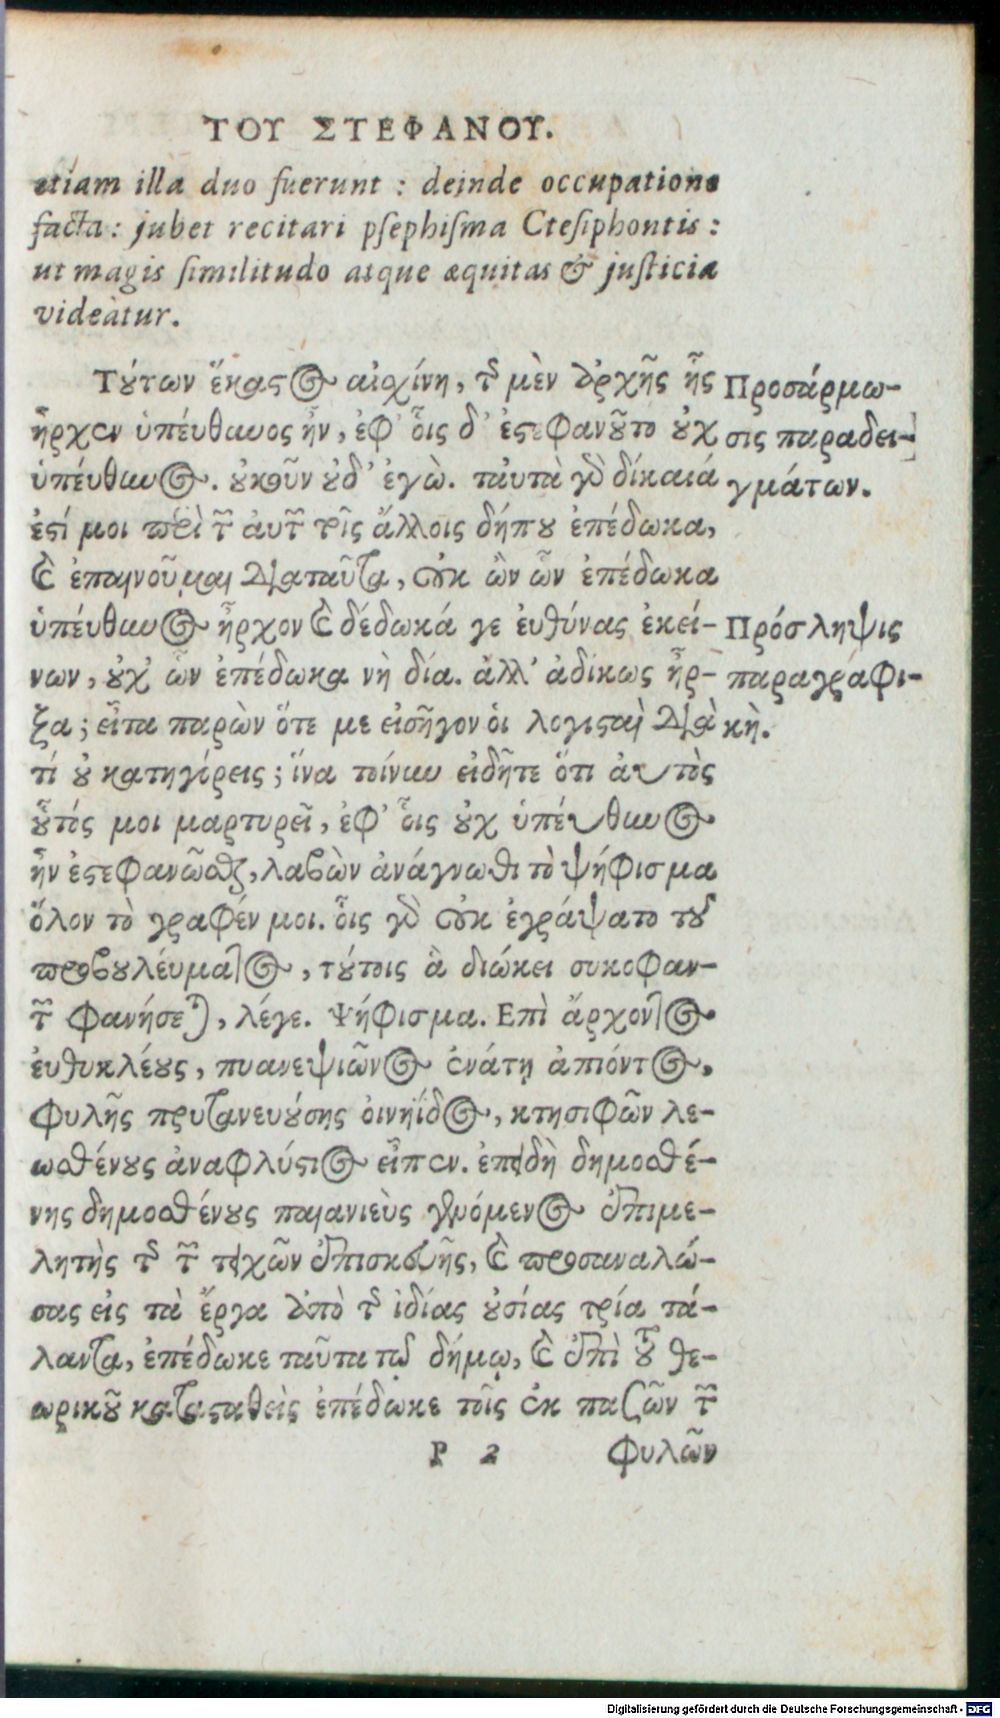 ΤΟΥ ΣΤΕΦΑΝΟΥ.
etiam illa duo fuerunt : deinde occupatione
facta : jubet recitari psephisma Ctesiphontis :
ut magis similitudo atque æquitas & justicia
videatur.
Τούτων ἕκαστος αἰσχίνη, τῆς μὲν ἀρχῆς ἧς
ἦρχεν ὑπεύθυνος ἦν, ἐφ' οἷς δ' ἐστεφανοῦτο οὐχ
ὑπεύθυνος. οὐκοῦν οὐδ' ἐγώ. ταὐτὰ γὰρ δίκαιά
ἐστί μοι περὶ τῶν αὐτῶν τοῖς ἄλλοις δήπου ἐπέδωκα,
καὶ ἐπαινοῦμαι διαταῦτα, οὐκ ὢν ὧν ἐπέδωκα
ὑπεύθυνος ἦρχον καὶ δέδωκά γε εὐθύνας ἐκεί-
νων, οὐχ' ὧν ἐπέδωκα νὴ δία. ἀλλ' ἀδίκως ἦρ-
ξα; εἶτα παρὼν ὅτε με εἰσῆγον οἱ λογισταὶ διὰ
τί οὐ κατηγόρεις; ἵνα τοίνυν εἰδῆτε ὅτι αὐτὸς
οὗτός μοι μαρτυρεῖ, ἐφ' οἷς οὐχ ὑπεύθυνος
ἦν ἐστεφανῶσθαι, λαβὼν ἀνάγνωθι τὸ ψήφισμα
ὅλον τὸ γραφέν μοι. οἷς γὰρ οὐκ ἐγράψατο τοῦ
προβουλεύματος, τούτοις ἃ διώκει συκοφαν-
τῶν φανήσεται, λέγε. Ψήφισμα. Επὶ ἄρχοντος
εὐθυκλέους, πυανεψιῶνος ἐνάτῃ ἀπιόντος,
φυλῆς πρυτανευούσης οἰνηΐδος, κτησιφῶν λε-
ωσθένους ἀναφλύστιος εἶπεν. ἐπειδὴ δημοσθέ-
νης δημοσθένους παιανιεὺς γενόμενος ἐπιμε-
λητὴς τῆς τῶν τειχῶν ἐπισκευῆς, καὶ προσαναλώ-
σας εἰς τὰ ἔργα ἀπὸ τῆς ἰδίας οὐσίας τρία τά-
λαντα, ἐπέδωκε ταῦτα τῷ δήμῳ, καὶ ἐπὶ τοῦ θε-
ωρικοῦ κατασταθεὶς ἐπέδωκε τοῖς ἐκ πασῶν τῶν
P 2 φυλῶν
Προσάρμω-
σις παραδει-
γμάτων.
Πρόσληψις
παραγραφι-
κὴ.
Digitalisierung gefördert durch die Deutsche Forschungsgemeinschaft - DFG